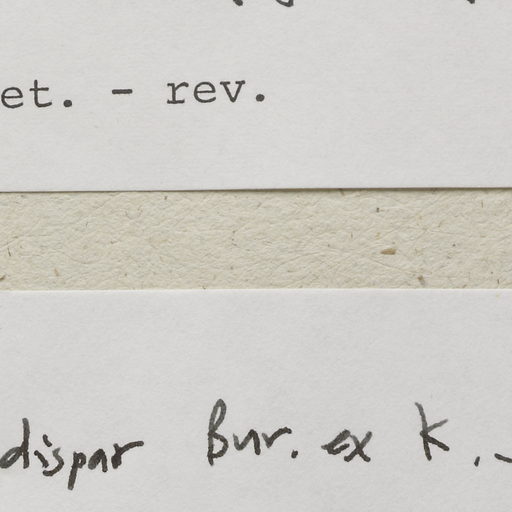 et. - rev.
dispar Bur. ex K. -